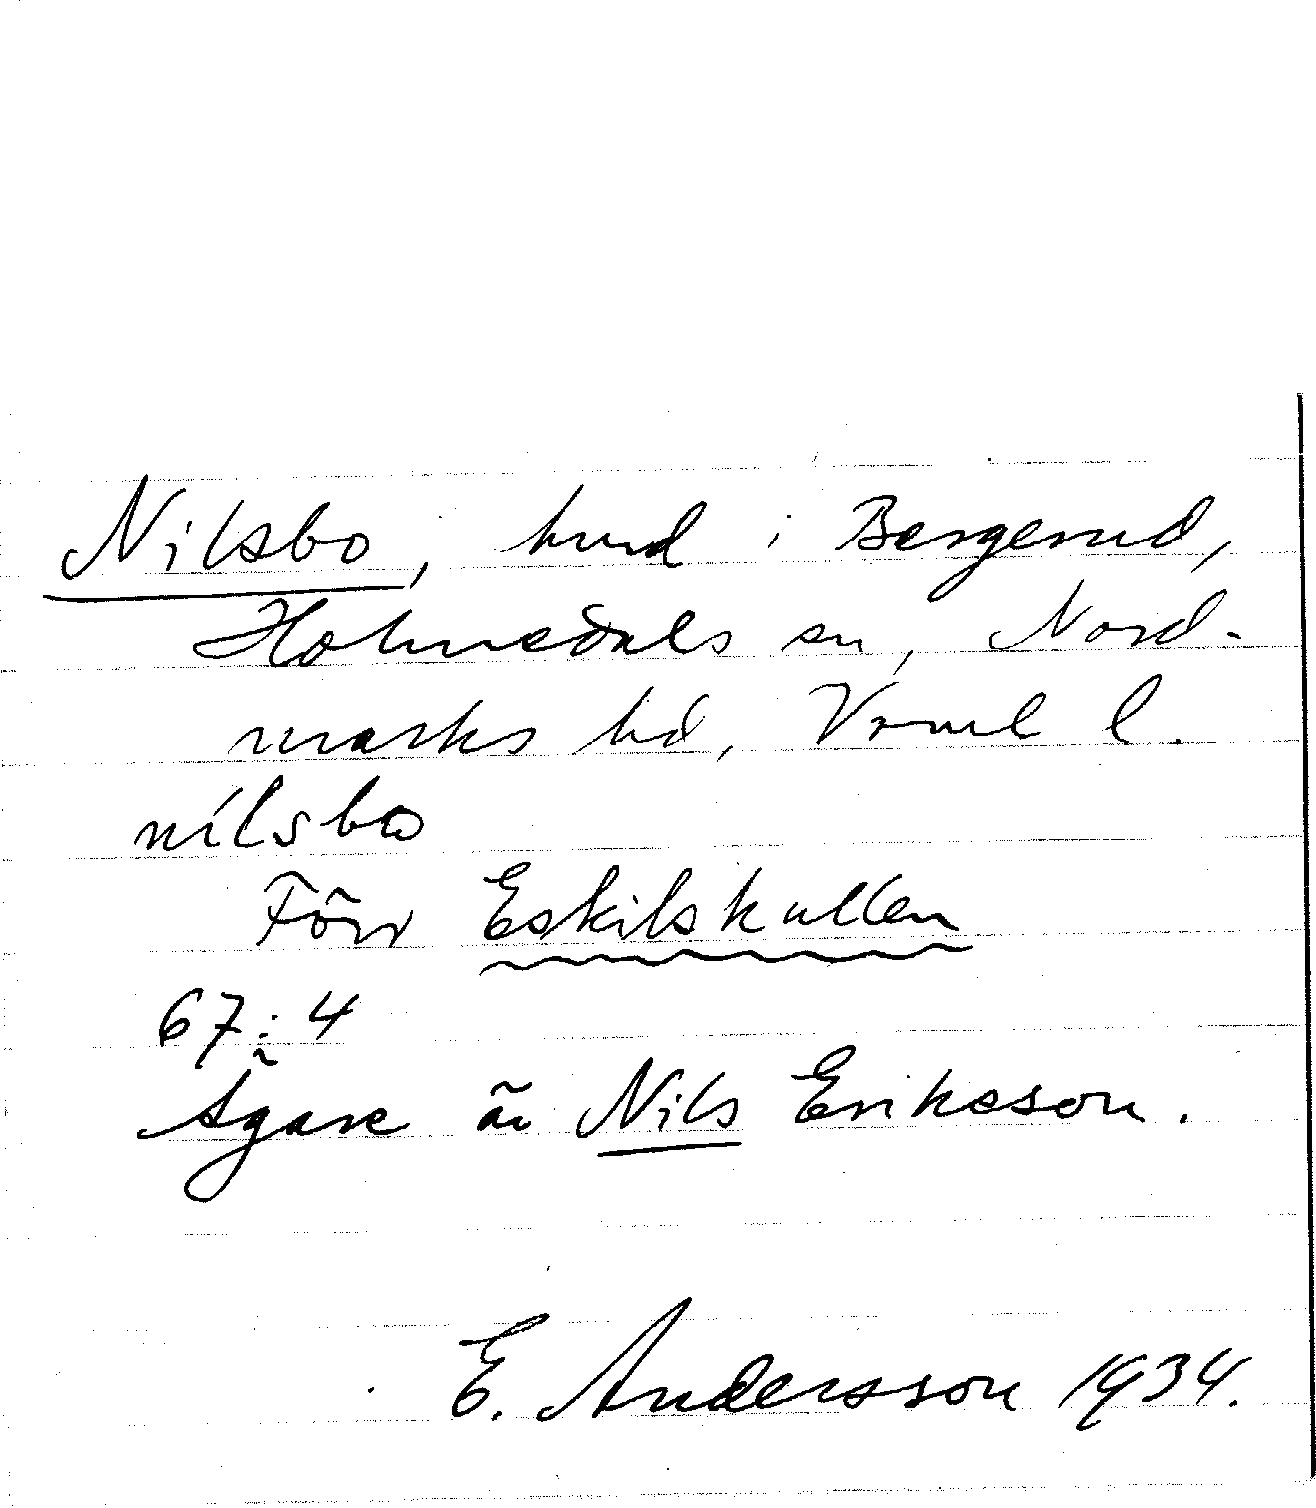 Nilsbo, hmd i Bergerud,
Holmedals sn, Nord-
marks hd, Vrml l.
nilsbo
Förr Eskilskullen
67:4
Ägare är Nils Eriksson.
E. Andersson 1934.